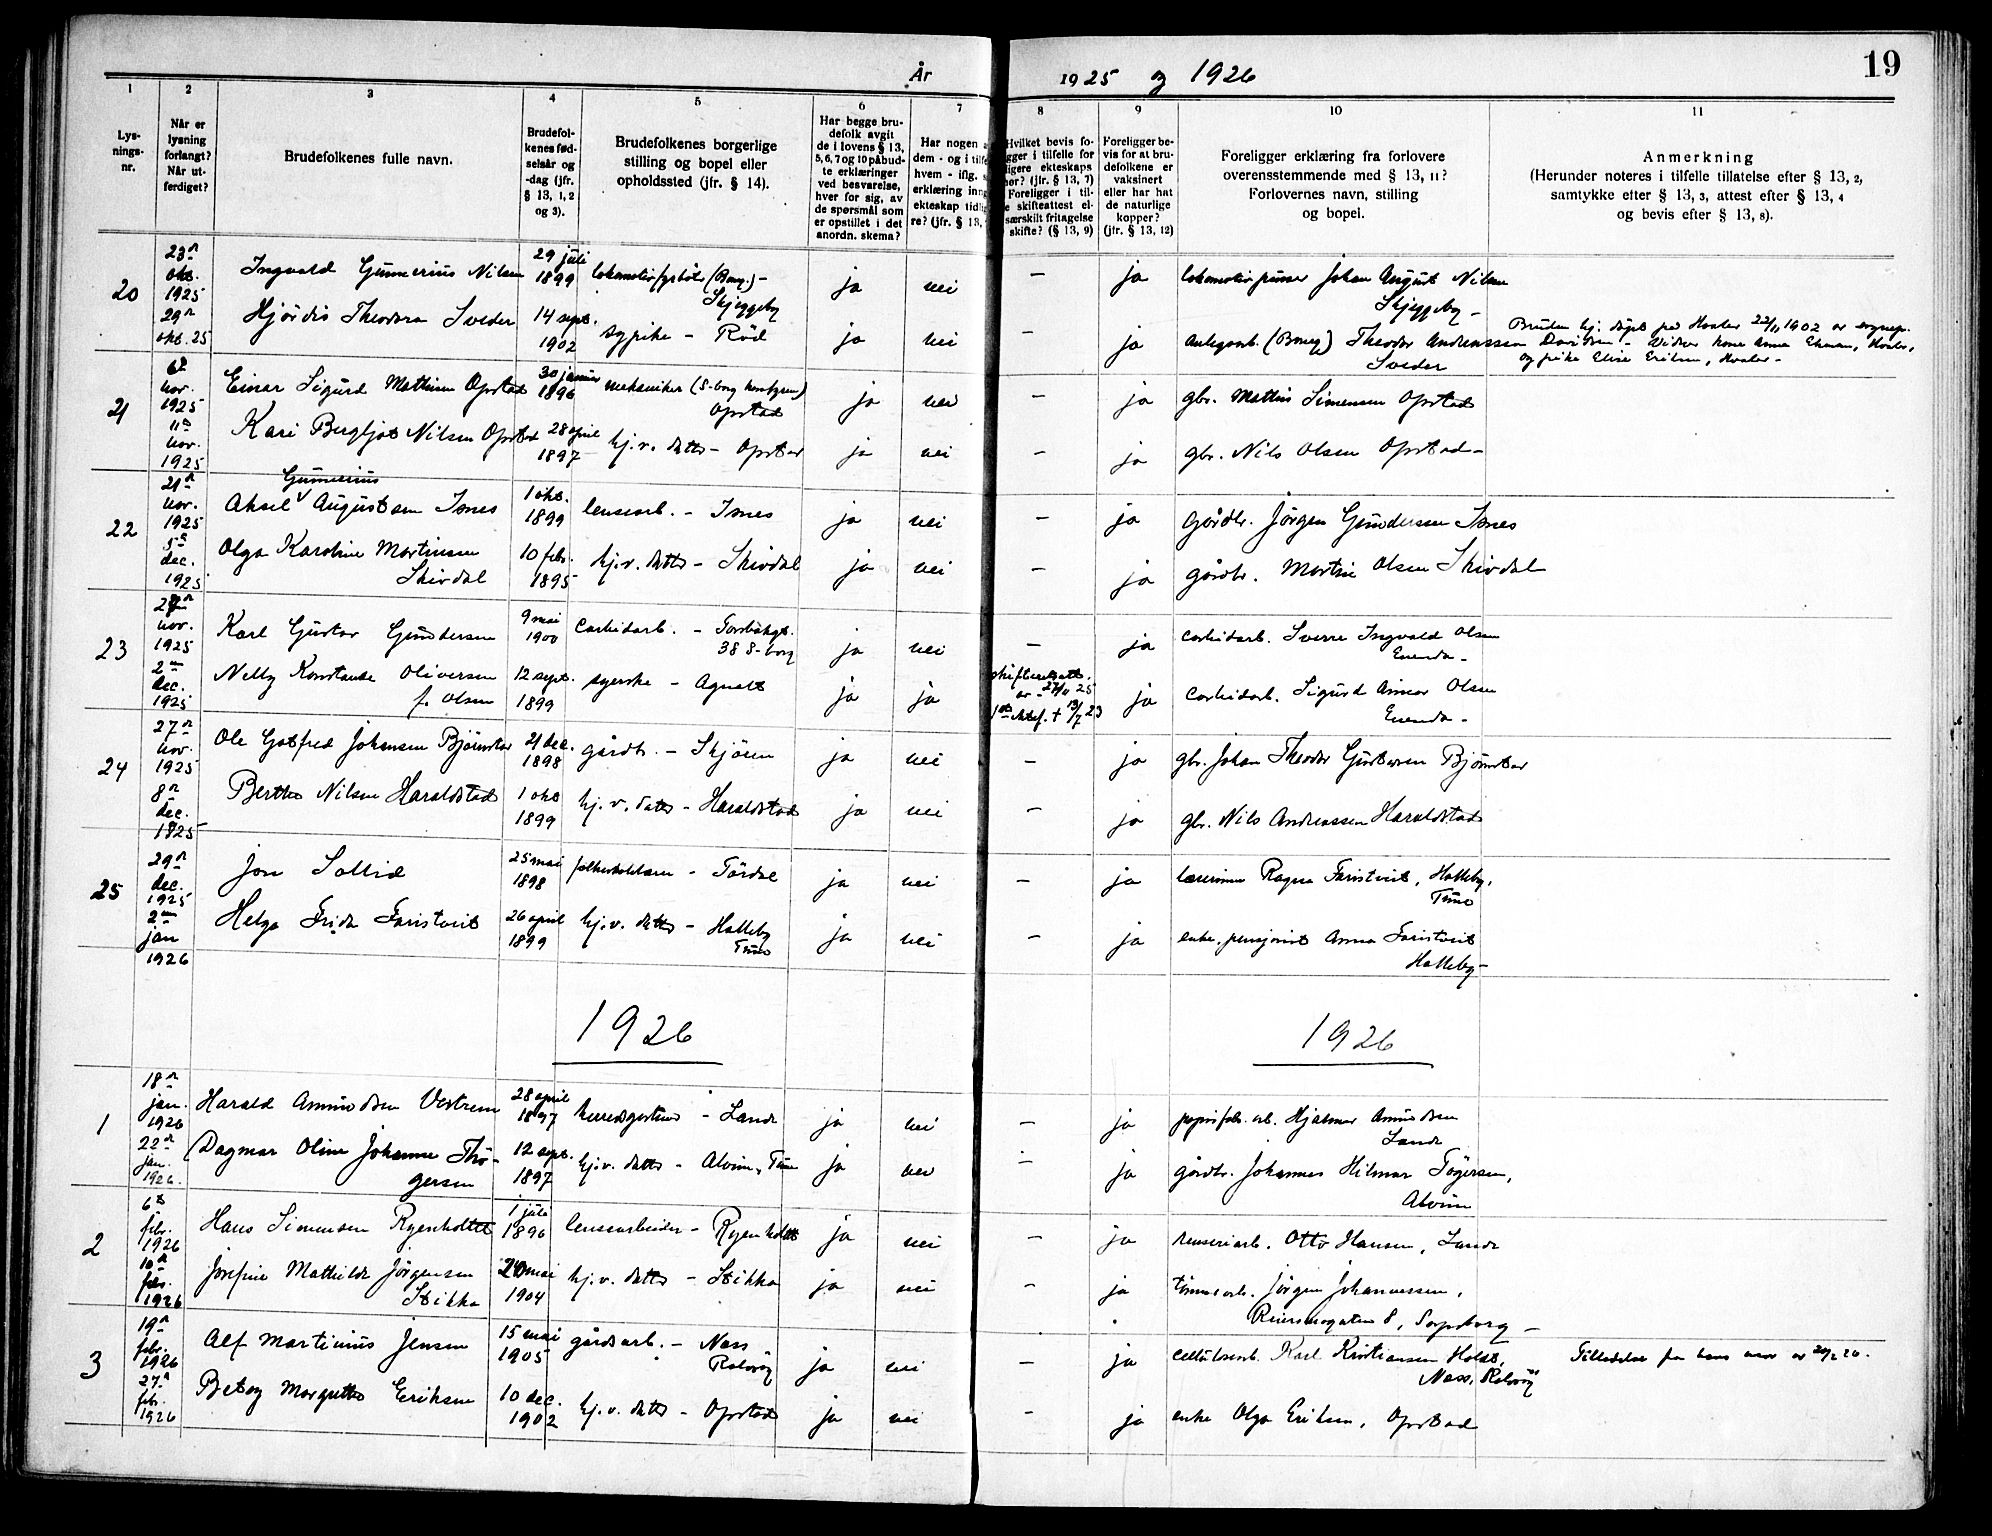 19
År 1925 og 1926
1 2 3 4 5 6 7 8 9 10 11
Lys-
nings-
nr.
Når er
lysning
forlangt?
Når ut-
ferdiget?
Brudefolkenes fulle navn.
Brudefol-
kenes fød-
selsår og
-dag (jfr.
§ 13, 1, 2
og 3).
Brudefolkenes borgerlige
stilling og bopel eller
opholdssted (jfr. § 14).
Har begge bru-
defolk avgit
de i lovens § 13,
5, 6, 7 og 10 påbud-
te erklæringer
ved besvarelse,
hver for sig, av
de spørsmål som
er opstillet i det
anordn. skema?
Har nogen
dem - og i tilfe
hvem - iflg.
erklæring inn
ekteskap tidli
re? (jfr. § 13,
Hvilket bevis fo-
gger i tilfelle for
ligere ekteskaps
hør? (jfr. § 13, 7)
Foreligger i til-
e skifteattest el-
særskilt fritagelse
skifte? (§ 13, 9)
Foreligger be-
vis for at bru-
defolkene er
vaksinert
eller har hat
de naturlige
kopper?
(jfr. § 13, 12)
Foreligger erklæring fra forlovere
overensstemmende med § 13, 11?
Forlovernes navn, stilling
og bopel.
Anmerkning
(Herunder noteres i tilfelle tillatelse efter § 13, 2,
samtykke efter § 13, 3, attest efter § 13, 4
og bevis efter § 13, 8).
20
23 okt. 1925
29 okt. 25
Ingvald Gunnerius Nilsen 29 juli 1899 lokomotivfyrbøter (Borg.) - Skjeggeby ja nei - ja lokomotivpusser Johan August Nilsen Skjeggeby -
Hjørdis Theodora Sveder 14 sept. 1902 sypike - Rød ja nei - ja anlegsarb. (Borg) Theodor Andreassen Sveder
Bruden hj. døpt på Hvaler 22/11 1902 av sognepr.
Davidsen - Vidner kone Anna Ekman, Hvaler,
og pike Elise Eriksen, Hvaler -
21
6 nov. 1925
11 nov. 1925
Einar Sigurd Mathisen Opstad 30 januar 1896 mekaniker (S-borg ) Opstad ja nei - ja gbr. Mathis Simensen Opstad
Kari Bergljot Nilsen Opstad 28 april 1897 hj.v. datter - Opstad ja nei - ja gbr. Nils Olsen Opstad -
22
21 nov. 1925
5 dec. 1925
Gunnerius
Aksel Augustsen Isnes 1 okt. 1899 lensearb. - Isnes ja nei - ja gårdbr. Jørgen Gundersen Isnes
Olga Karoline Martinsen Skivdal 10 febr. 1895 hj.v. datter - Skivdal ja nei - ja gårdbr. Martin Olsen Skivdal
23
nov. 1925
2 dec. 1925
Karl Gustav Gundersen 9 mai 1900 carbidarb. - 38 S-borg ja nei - ja carbidarb. Sverre Ingvald Olsen Enenda -
Nelly Konstance Oliversen f. Olsen 12 sept. 1899 syerske - Agnalt ja ja skifteretsatt. av 27/11 25 1ste ektef. + 13/7 23 ja carbidarb. Sigurd Olsen Enenda -
24
27 nov. 1925
8 dec. 1925
Ole Gotfred Johansen Bjørnstad 21 dec. 1898 gårdbr. - Skjøren ja nei - ja gbr. Johan Theodor Gustavsen Bjørnstad
Berthe Nilsen Haraldstad 1 okt 1899 hj.v. datter - Haraldstad ja nei - ja gbr. Nils Andreassen Haraldstad
25
29 dec. 1925
2 jan 1926
Jon Sollid 25 mai 1898 folkeskolelærer - Tørdal ja nei - ja lærerinne Ragna Faristveit, Halleby, Tune
Helga Frida Faristveit 26 april 1899 hj.v. datter - Halleby Tune ja nei - ja enke, pensjonist Anna Faristveit Halleby -
1926 1926
1
18 jan. 1926
22 jan. 1926
Harald Amundsen Vestreim 28 april 1897 herredsgartner - Lande ja nei - ja papirfabr. arb. Hjalmar Amundsen Lande
Dagmar Oline Johanne Thøgersen 12 sept. 1897 hj.v. datter - Alvim, Tune ja nei - ja gårdbr. Johannes Hilmar Tøgersen, Alvim
2
6 febr. 1926
10 febr. 1926
Hans Simensen Ryenholtet 1 juli 1896 lensearbeider - Ryenholtet ja nei - ja renseriarb. Otto Hansen, Lande
Josefine Mathilde Jørgensen Stikka 20 mai 1904 hj.v. datter - Stikka ja nei - ja tømmerarb. Jørgen Johannessen, Reiersengaten 8, Sarpsborg -
3
19 febr. 1926
27 febr. 1926
Alf Martinius Jensen 15 mai 1905 gårdsarb. - Nass Rolvsøy ja nei - ja cellulosearb. Karl Kristiansen Holdt, Nass, Rolvsøy
Tilladelse fra hans mor av 24/2 26.
Betsy Margrethe Eriksen 10 dec. 1902 hj.v. datter - Opstad ja nei - ja enke Olga Eriksen, Opstad